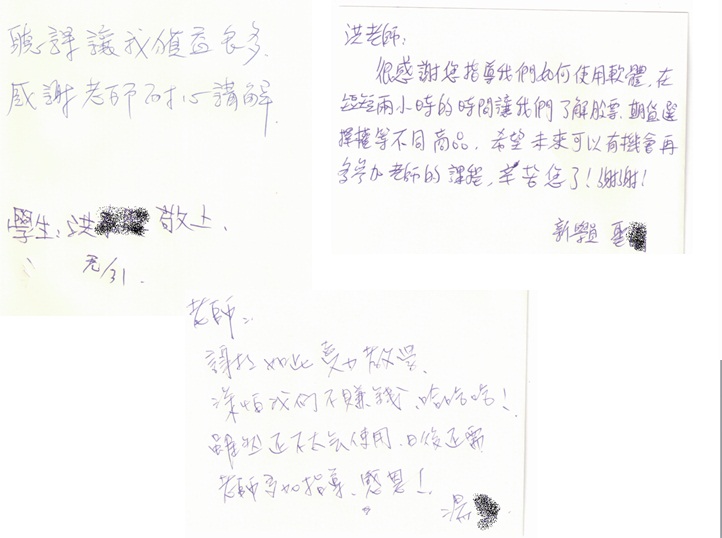 聽課讓我值益良多.
感謝老師耐心講解.
學生:洪 敬上.
元/31.
洪老師:
很感謝您指導我們如何使用軟體,在
短短兩小時的時間讓我們了解股票.期貨選
擇權等不同商品,希望未來可以有機會再
多參加老師的課程,辛苦您了!謝謝!
新學員 聖
老師:
謝於如此賣力教學,
深怕我們不賺錢、哈哈哈!
雖然还不太会使用.日後还需
老師多加指導、感恩!.